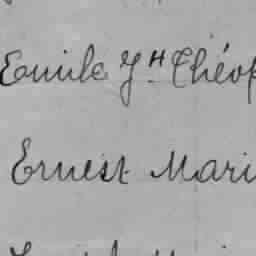 Emile J H Théop
Ernest Mari